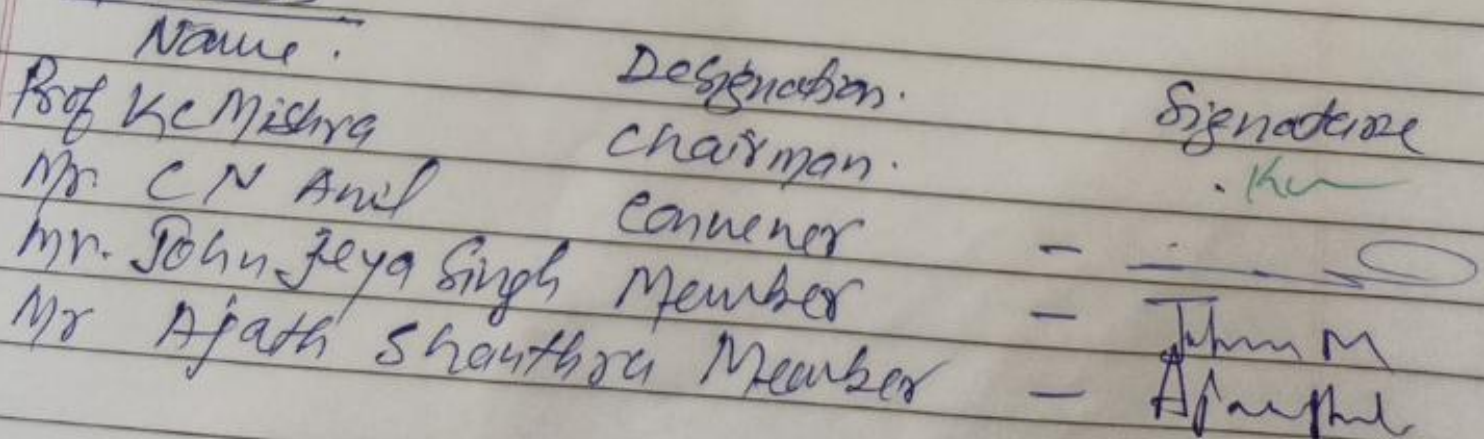 Name. Designation. Signature
Prof KC Mishra Chairman.
Mr. C N Anil Convener -
Mr. John Jeya Singh Member - John M
Mr Ajath Shanthra Member -